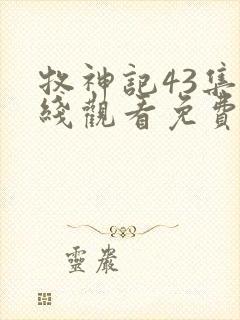 牧神記43集
綫觀看免費
靈巖